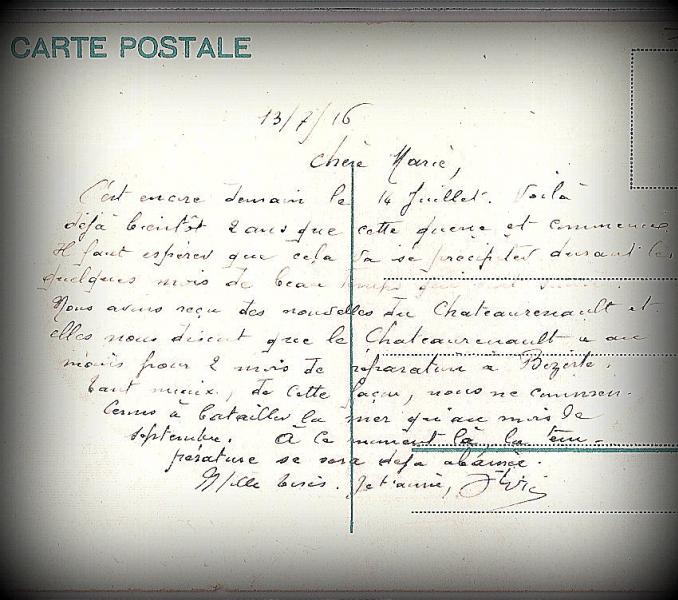 CARTE POSTALE
13/7/16
Chère Marie,
C'est encore demain le 14 Juillet. Voilà
déjà bientôt 2 ans que cette guerre est commencée
Il faut espérer que cela va se précipiter durant les
quelques mois de beau temps qui
Nous avons reçu des nouvelles du Chateaurenault et
elles nous disent que le Chateaurenault a au
moins pour 2 mois de réparation à Bizerte.
Tant mieux, de cette façon, nous ne commen-
cerons à batailler la mer qu'au mois de
septembre. À ce moment là, la tem-
pérature se sera déjà abaissée.
Mille baisers. Je t'aime,